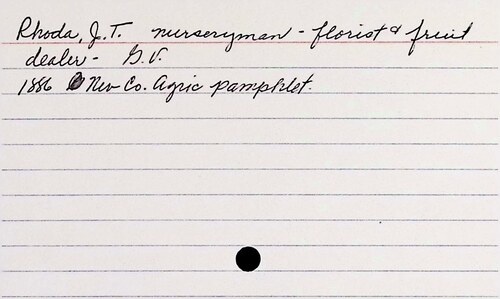 Rhoda, J.T. nurseryman - florist & fruit
dealer - G.V.
1886 Nev Co. Agric pamphlet.